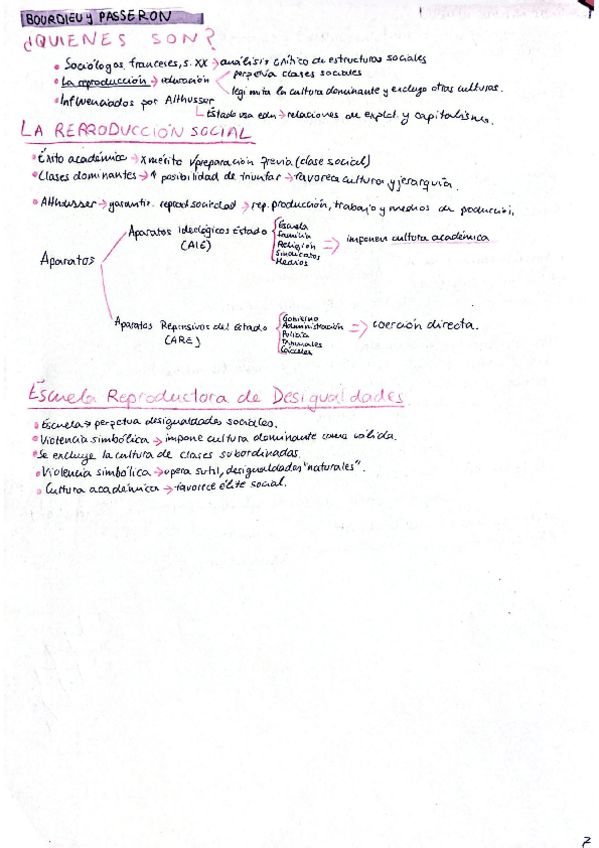 BOURDIEU y PASSERON
¿QUIENES SON?
• Sociólogos franceses, s. XX → análisis crítico de estructuras sociales
• La reproducción → educación
perpetúa clases sociales
legitimita la cultura dominante y excluye otras culturas.
• Influenciados por Althusser
Estado usa edu → relaciones de explot. y capitalismo.
LA REPRODUCCIÓN SOCIAL
• Éxito académico → x mérito y preparación previa (clase social)
• Clases dominantes → ↑ posibilidad de triunfar → favorece cultura y jerarquía.
• Althusser → garantiz. reprod sociedad → rep. producción, trabajo y medios de producción.
Aparatos
Aparatos Ideológicos Estado (AIE)
Escuela
Familia
Religión
Sindicatos
Medios
⇒ imponen cultura académica
Aparatos Represivos del Estado (ARE)
Gobierno
Administración
Policía
Tribunales
Cárceles
⇒ coerción directa.
Escuela Reproductora de Desigualdades
• Escuela → perpetua desigualdades sociales.
• Violencia simbólica → impone cultura dominante como válida.
• Se excluye la cultura de clases subordinadas.
• Violencia simbólica → opera sutil, desigualdades "naturales".
• Cultura académica → favorece élite social.
7